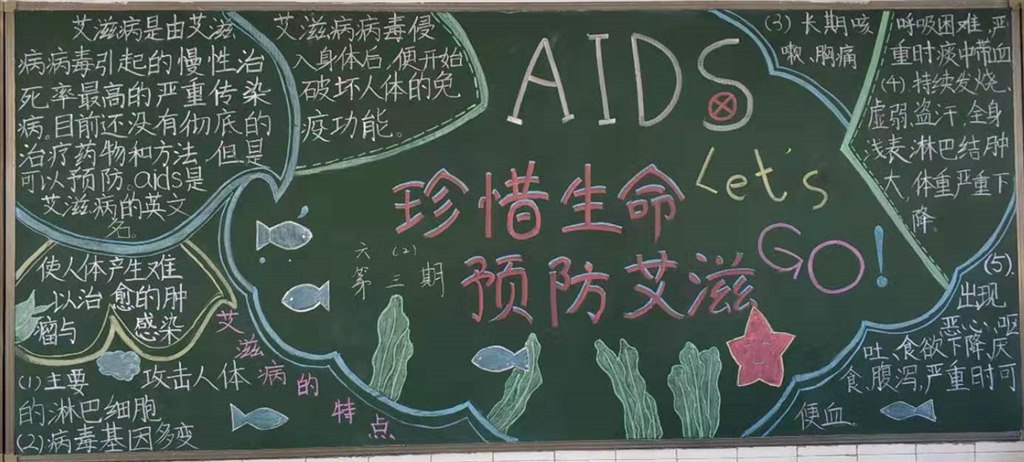 艾滋病是由艾滋
病病毒引起的慢性治
死率最高的严重传染
病。目前还没有彻底的
治疗药物和方法,但是
可以预防。aids是
艾滋病的英文
名。
艾滋病病毒侵
入身体后,便开始
破坏人体的免
疫功能。
使人体产生难
以治愈的肿
瘤与感染
(1)主要攻击人体
的淋巴细胞
(2)病毒基因多变
艾滋病的特点
AIDS
珍惜生命
预防艾滋
Let's
GO!
六(2)
第三期
(3)长期咳
嗽,胸痛
呼吸困难,严
重时痰中带血
(4)持续发烧、
虚弱,盗汗,全身
浅表淋巴结肿
大,体重严重下
降。
(5).
出现
恶心、呕
吐、食欲下降、厌
食,腹泻,严重时可
便血。